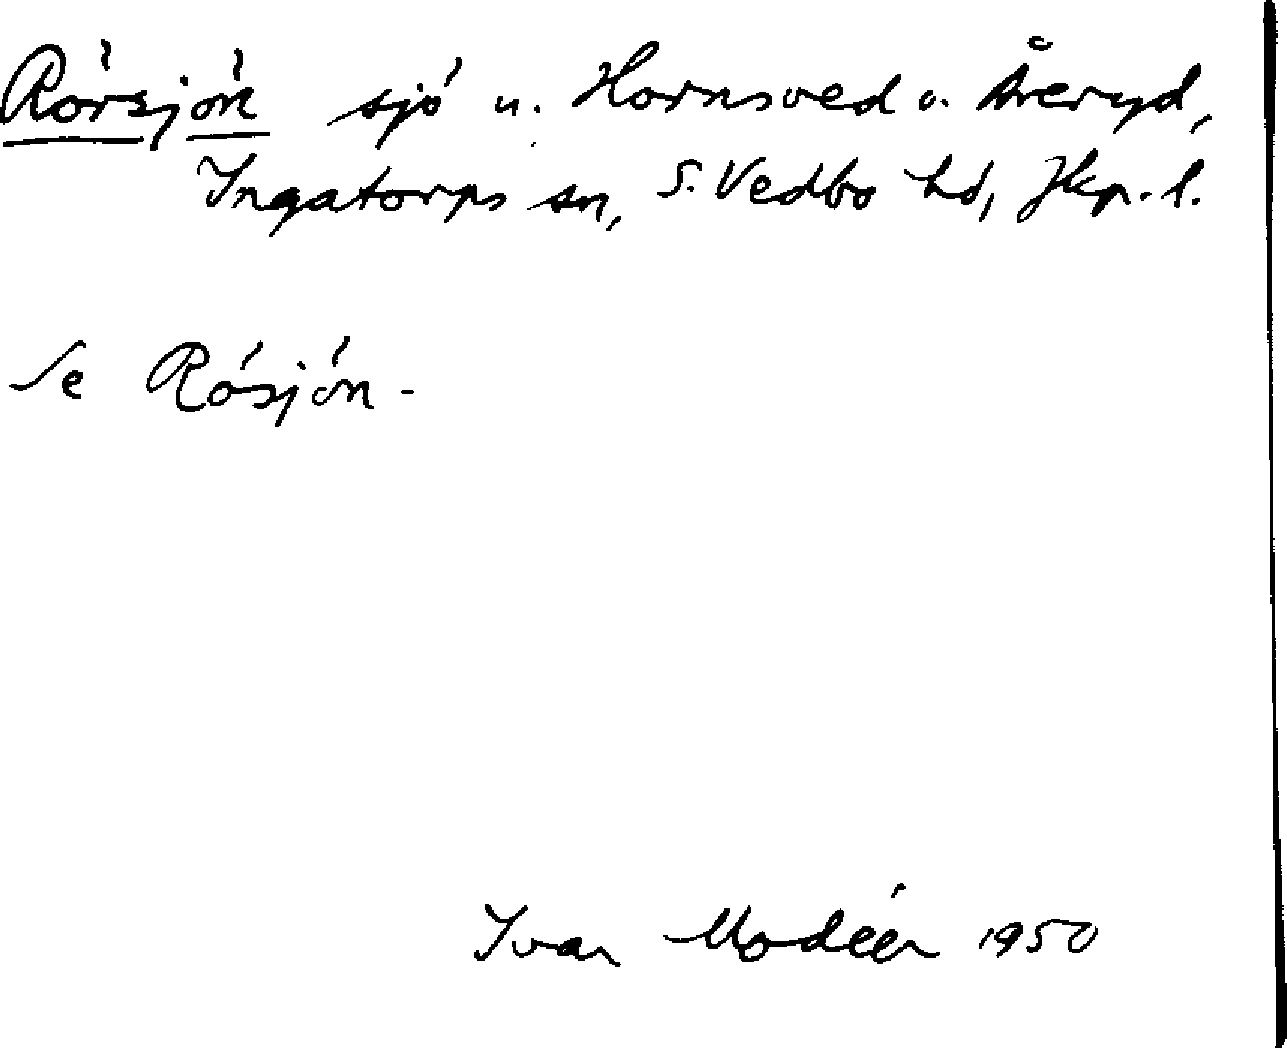 Rörsjön sjö u. Hornsved o. Åreryd,
Ingatorps sn, S. Vedbo hd, Jkp. l.
Se Rösjön.
Ivar Modéer 1950